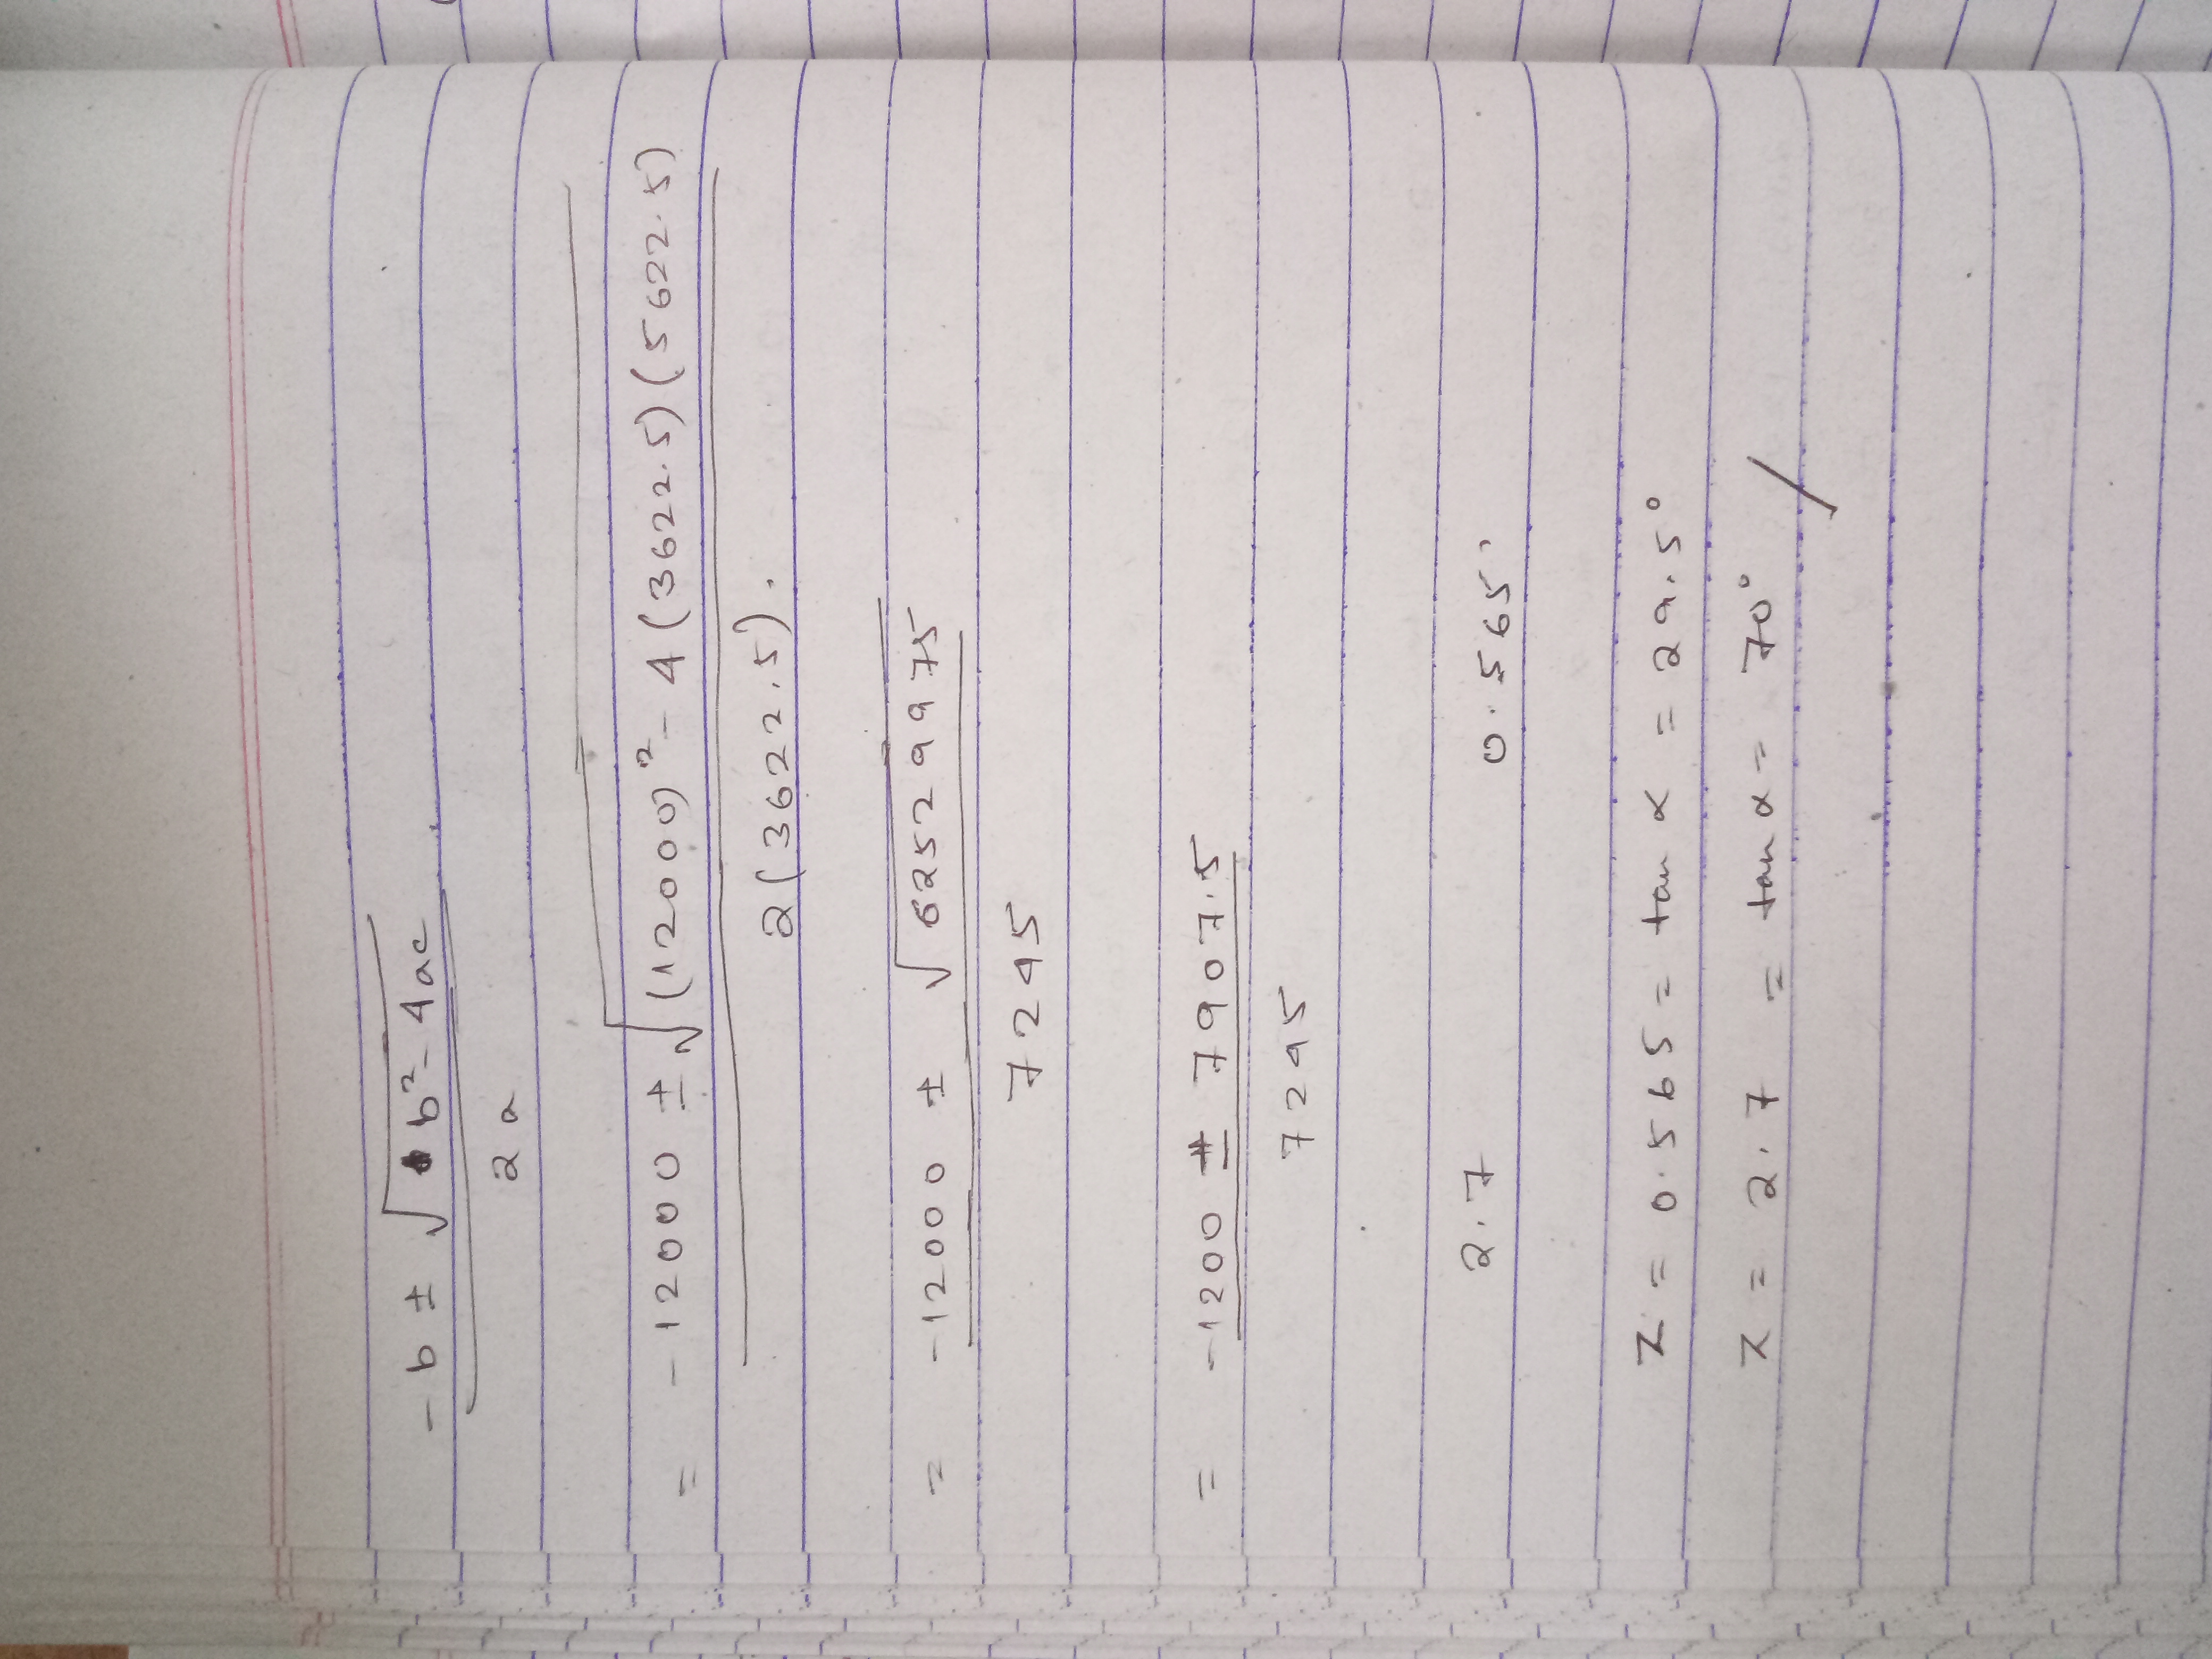 -b ± √b²-4ac
2a
= -12000 ± √(12000)² - 4(3622.5)(5622.5)
2(3622.5).
= -12000 ± √62529975
7245
= -1200 ± 7907.5
7245
2.7 0.565
z = 0.565 = tan α = 29.5°
z = 2.7 = tan α = 70°